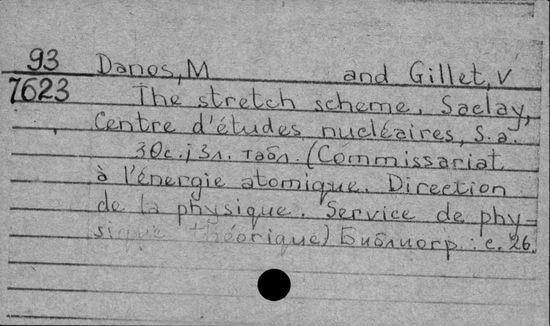 93 Danos, M and Gillet, V
7623 The stretch scheme. Saclay,
Centre d'études nucléaires, s.a.
30c.; 31. табл. (Commissariat
à l'énergie atomique. Direction
de la physique. Service de phy-
sique théorique) Библиогр.: с. 26.